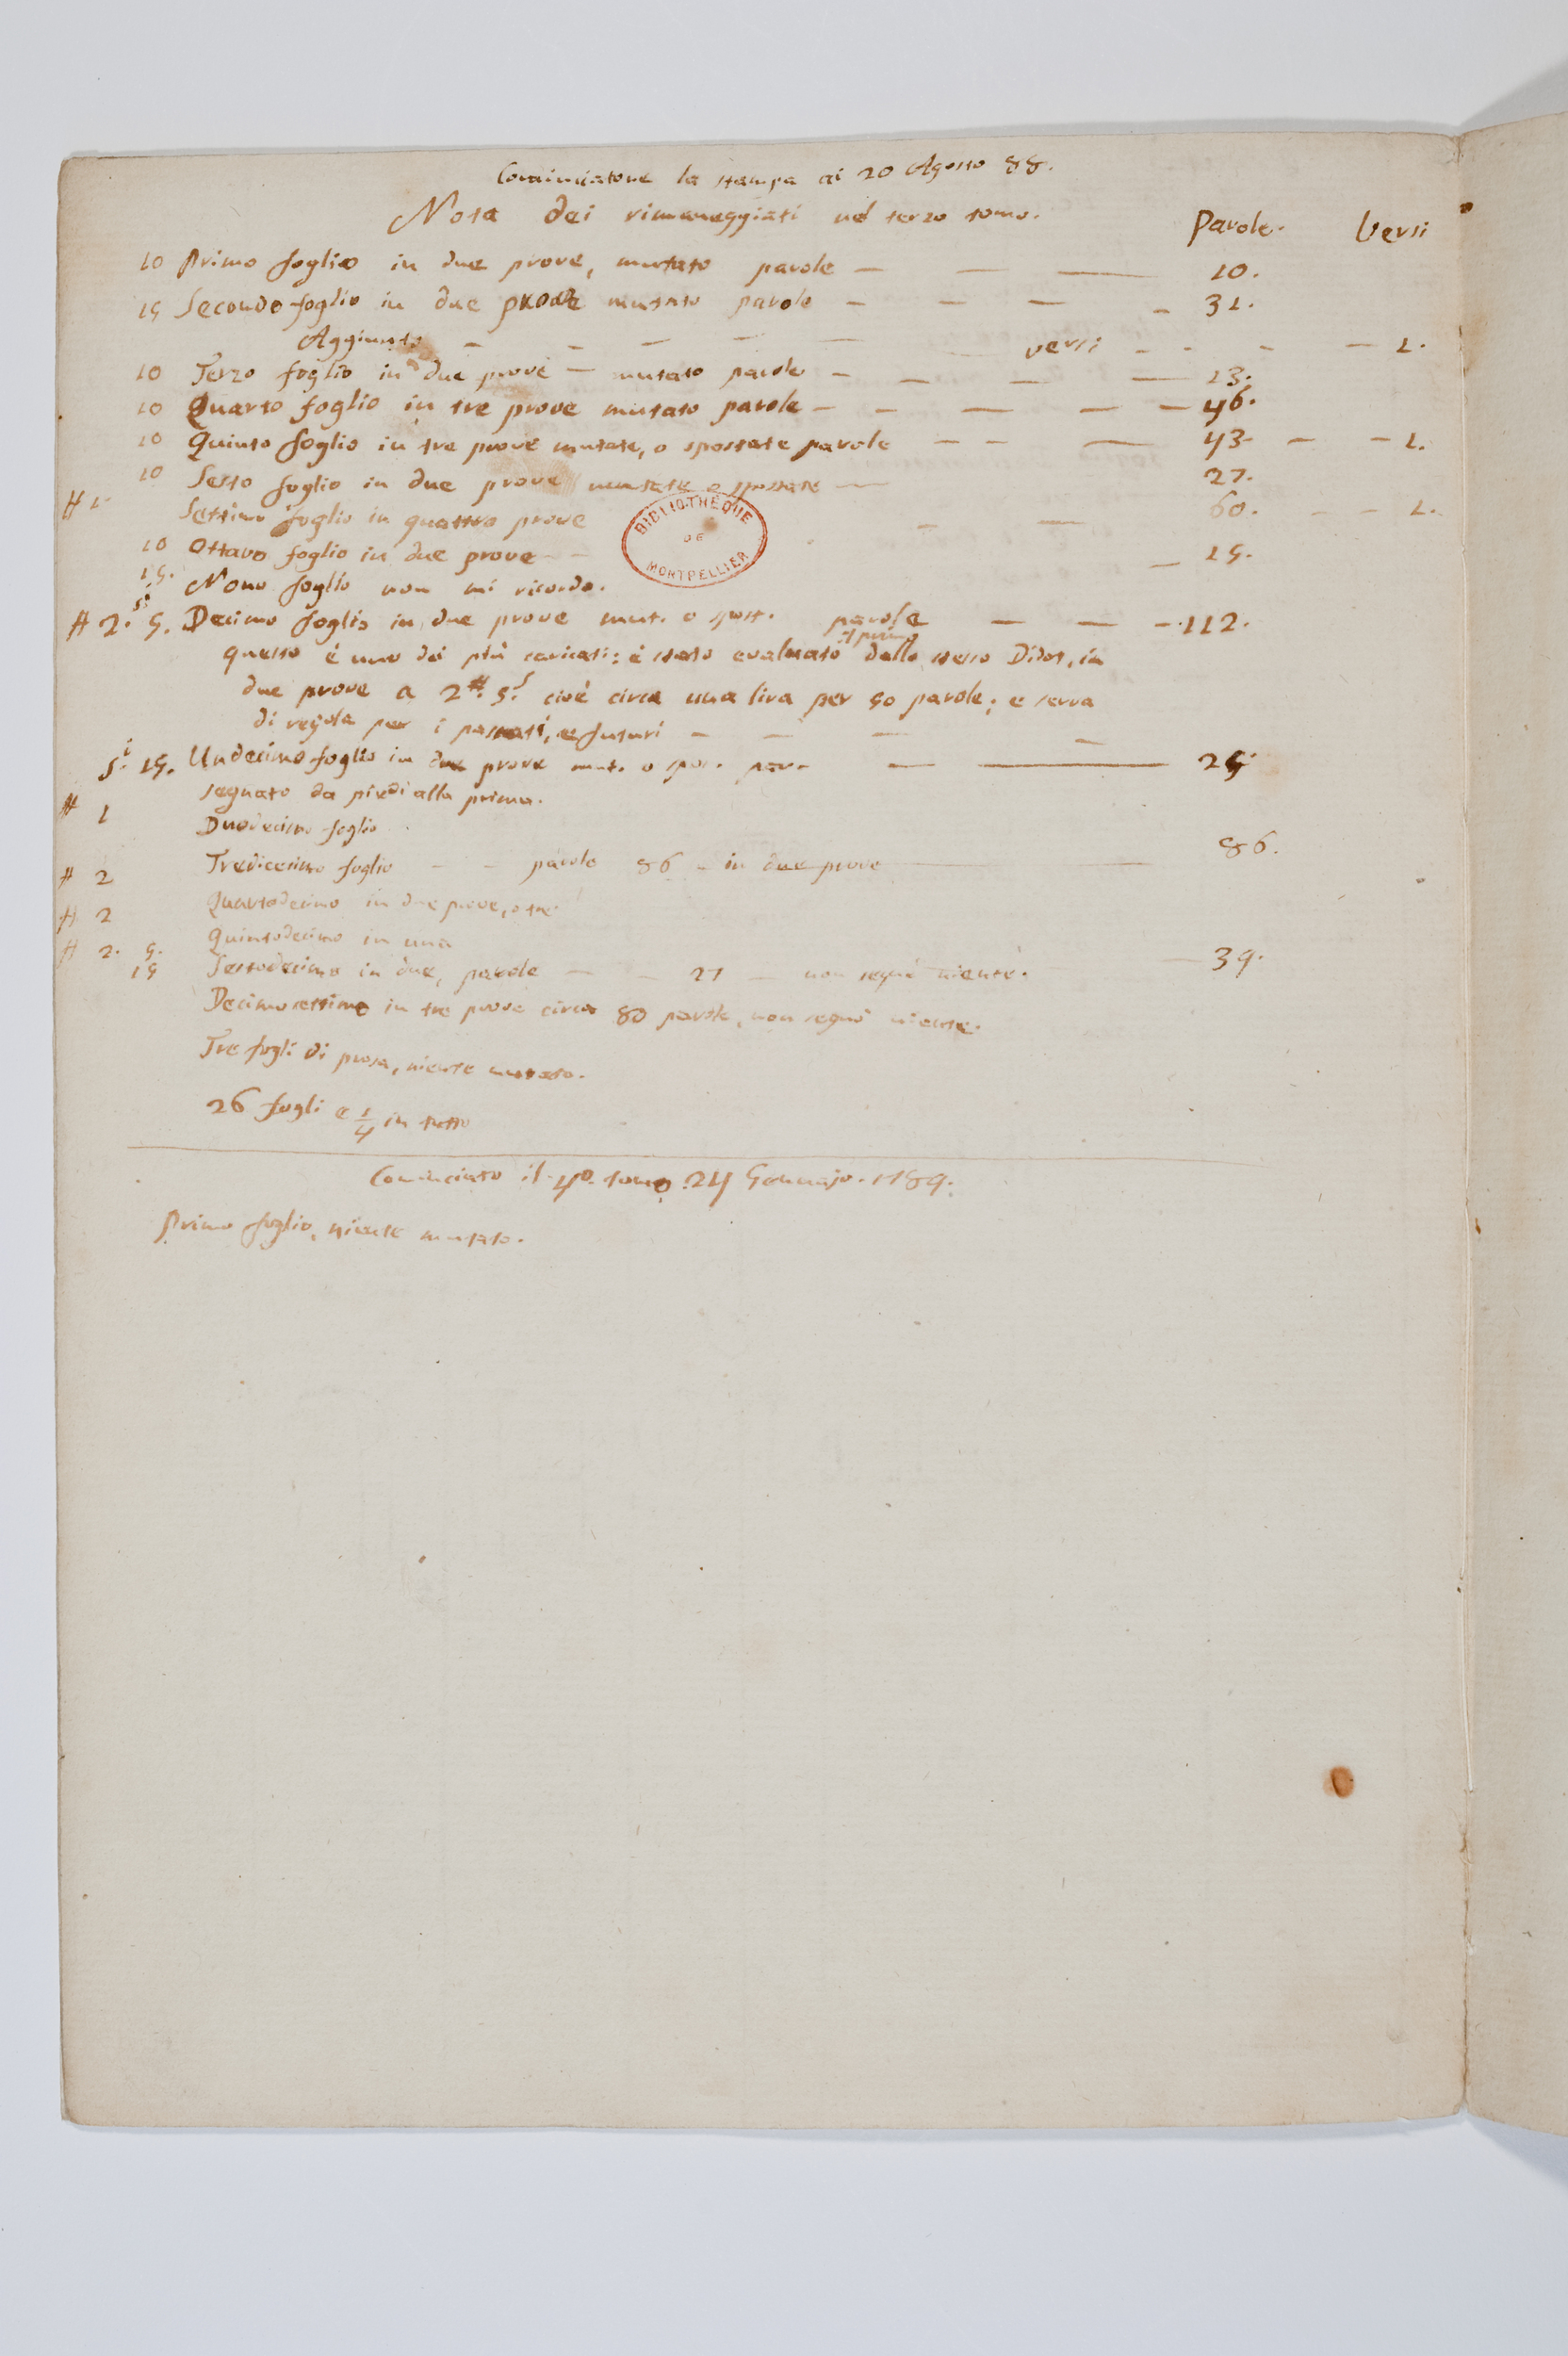 Cominciatone la stampa ai 20 Agosto 88.
Nota dei rimaneggiati nel terzo tomo. Parole. Versi
10 Primo foglio in due prove, mutato parole — — — 10.
15 Secondo foglio in due prove mutato parole — — — — 31.
Aggiunto — — — — — — versi — - - — 1.
10 Terzo foglio in due prove — mutato parole — — — — 13.
10 Quarto foglio in tre prove mutato parole — — — — — 46.
10 Quinto foglio in tre prove mutate, o spostate parole — — — 43 — — 1.
10 Sesto foglio in due prove mutate o spostate — 27.
# 1 Settimo foglio in quattro prove — — 60. — — 1.
BIBLIOTHEQUE DE MONTPELLIER
10 Ottavo foglio in due prove — — — 15.
15. Nono foglio non mi ricordo.
# 2. 5. Decimo foglio in due prove mut. o spost. parole — — — 112.
questo è uno dei più caricati: è stato evaluato dallo stesso Didot, in
due prove a 2# 5s cioè circa una lira per 50 parole; e serva
di regola per i passati, e futuri — — — —
s. 15. Undecimo foglio in due prove mut. o spos. par. — — 25.
segnato da piedi alla prima.
# 1 Duodecimo foglio
# 2 Tredicesimo foglio — — parole 86 — in due prove — 86.
# 2 Quartodecimo in due prove, o tre
# 2. 5. Quintodecimo in una
15 Sestodecimo in due, parole — — 27 — non segnò niente. — 39.
Decimosettimo in tre prove circa 80 parole, non segnò niente.
Tre fogli di prosa, niente mutato.
26 fogli e 1/4 in tutto
Cominciato il 4o. tomo. 24 Gennajo. 1789.
Primo foglio, niente mutato.